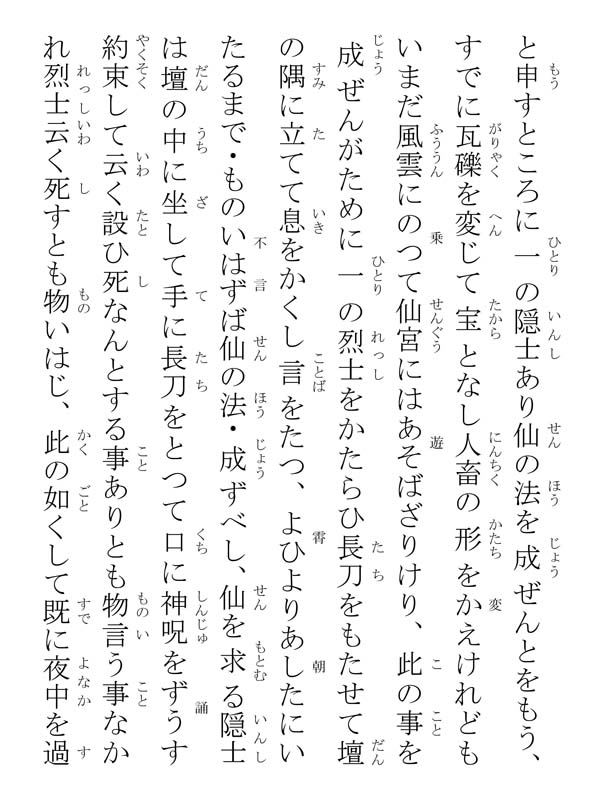 と申すところに一の隠士あり仙の法を成ぜんとをもう、
すでに瓦礫を変じて宝となし人畜の形をかえけれども
いまだ風雲にのつて仙宮にはあそばざりけり、此の事を
成ぜんがために一の烈士をかたらひ長刀をもたせて壇
の隅に立てて息をかくし言をたつ、よひよりあしたにい
たるまで・ものいはずば仙の法・成ずべし、仙を求る隠士
は壇の中に坐して手に長刀をとつて口に神呪をずうす
約束して云く設ひ死なんとする事ありとも物言う事なか
れ烈士云く死すとも物いはじ、此の如くして既に夜中を過